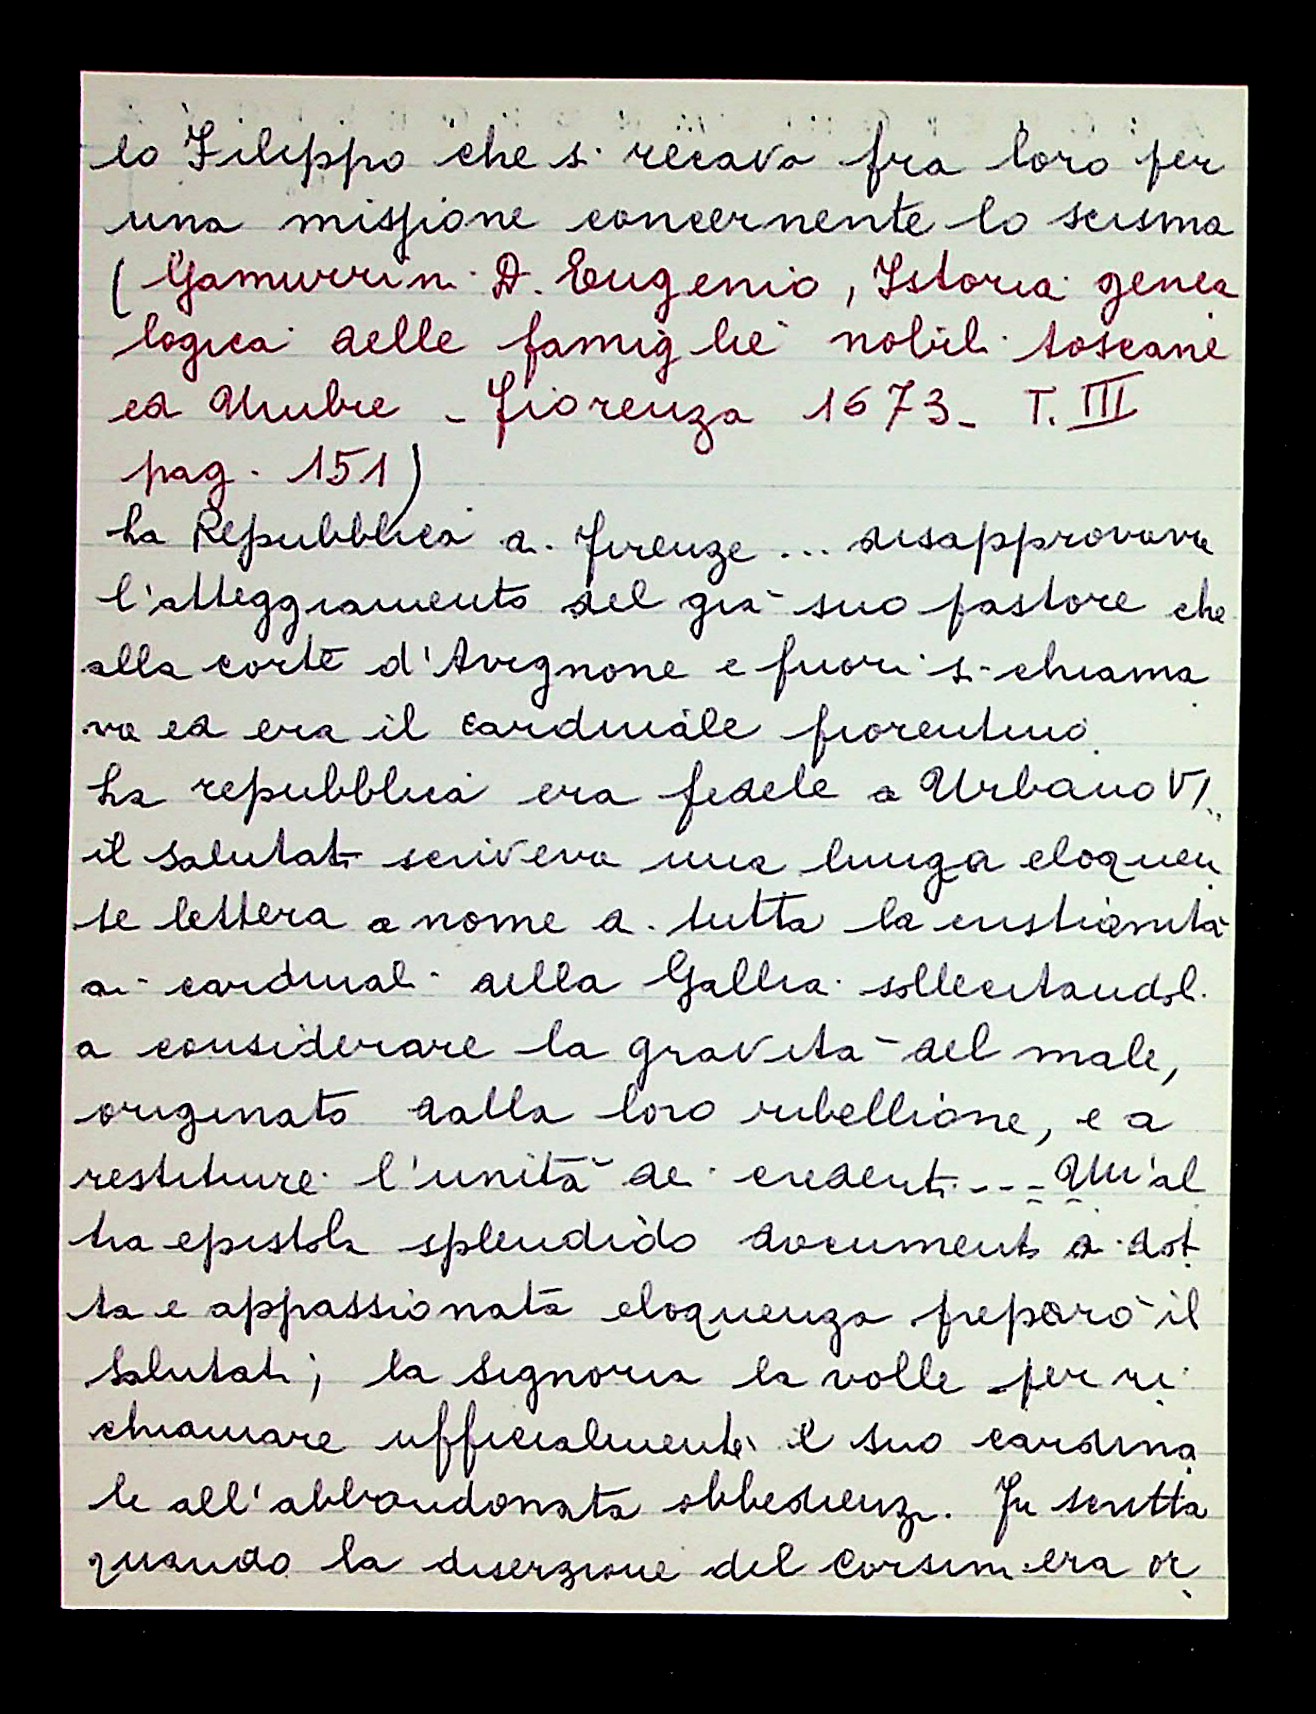 lo Filippo che si recava fra loro per
una missione concernente lo scisma
(Gamurrini D. Eugenio, Istoria genea
logica delle famiglie nobili toscane
ed Umbre - Fiorenza 1673 - T. III
pag. 151)
La Repubblica di Firenze ... disapprovava
l'atteggiamento del già suo pastore che
alla corte d'Avignone e fuori si chiama
va ed era il cardinale fiorentino.
La repubblica era fedele a Urbano VI.
il Salutati scriveva una lunga eloquen
te lettera a nome di tutta la cristianità
ai cardinali della Gallia sollecitandoli
a considerare la gravità del male,
originato dalla loro ribellione, e a
restituire l'unità dei credenti ---- Un'al
tra epistola splendido documento di dot
ta e appassionata eloquenza preparò il
Salutati; la signoria la volle per ri
chiamare ufficialmente il suo cardina
le all'abbandonata obbedienza. Fu scritta
quando la diserzione del Corsini era or